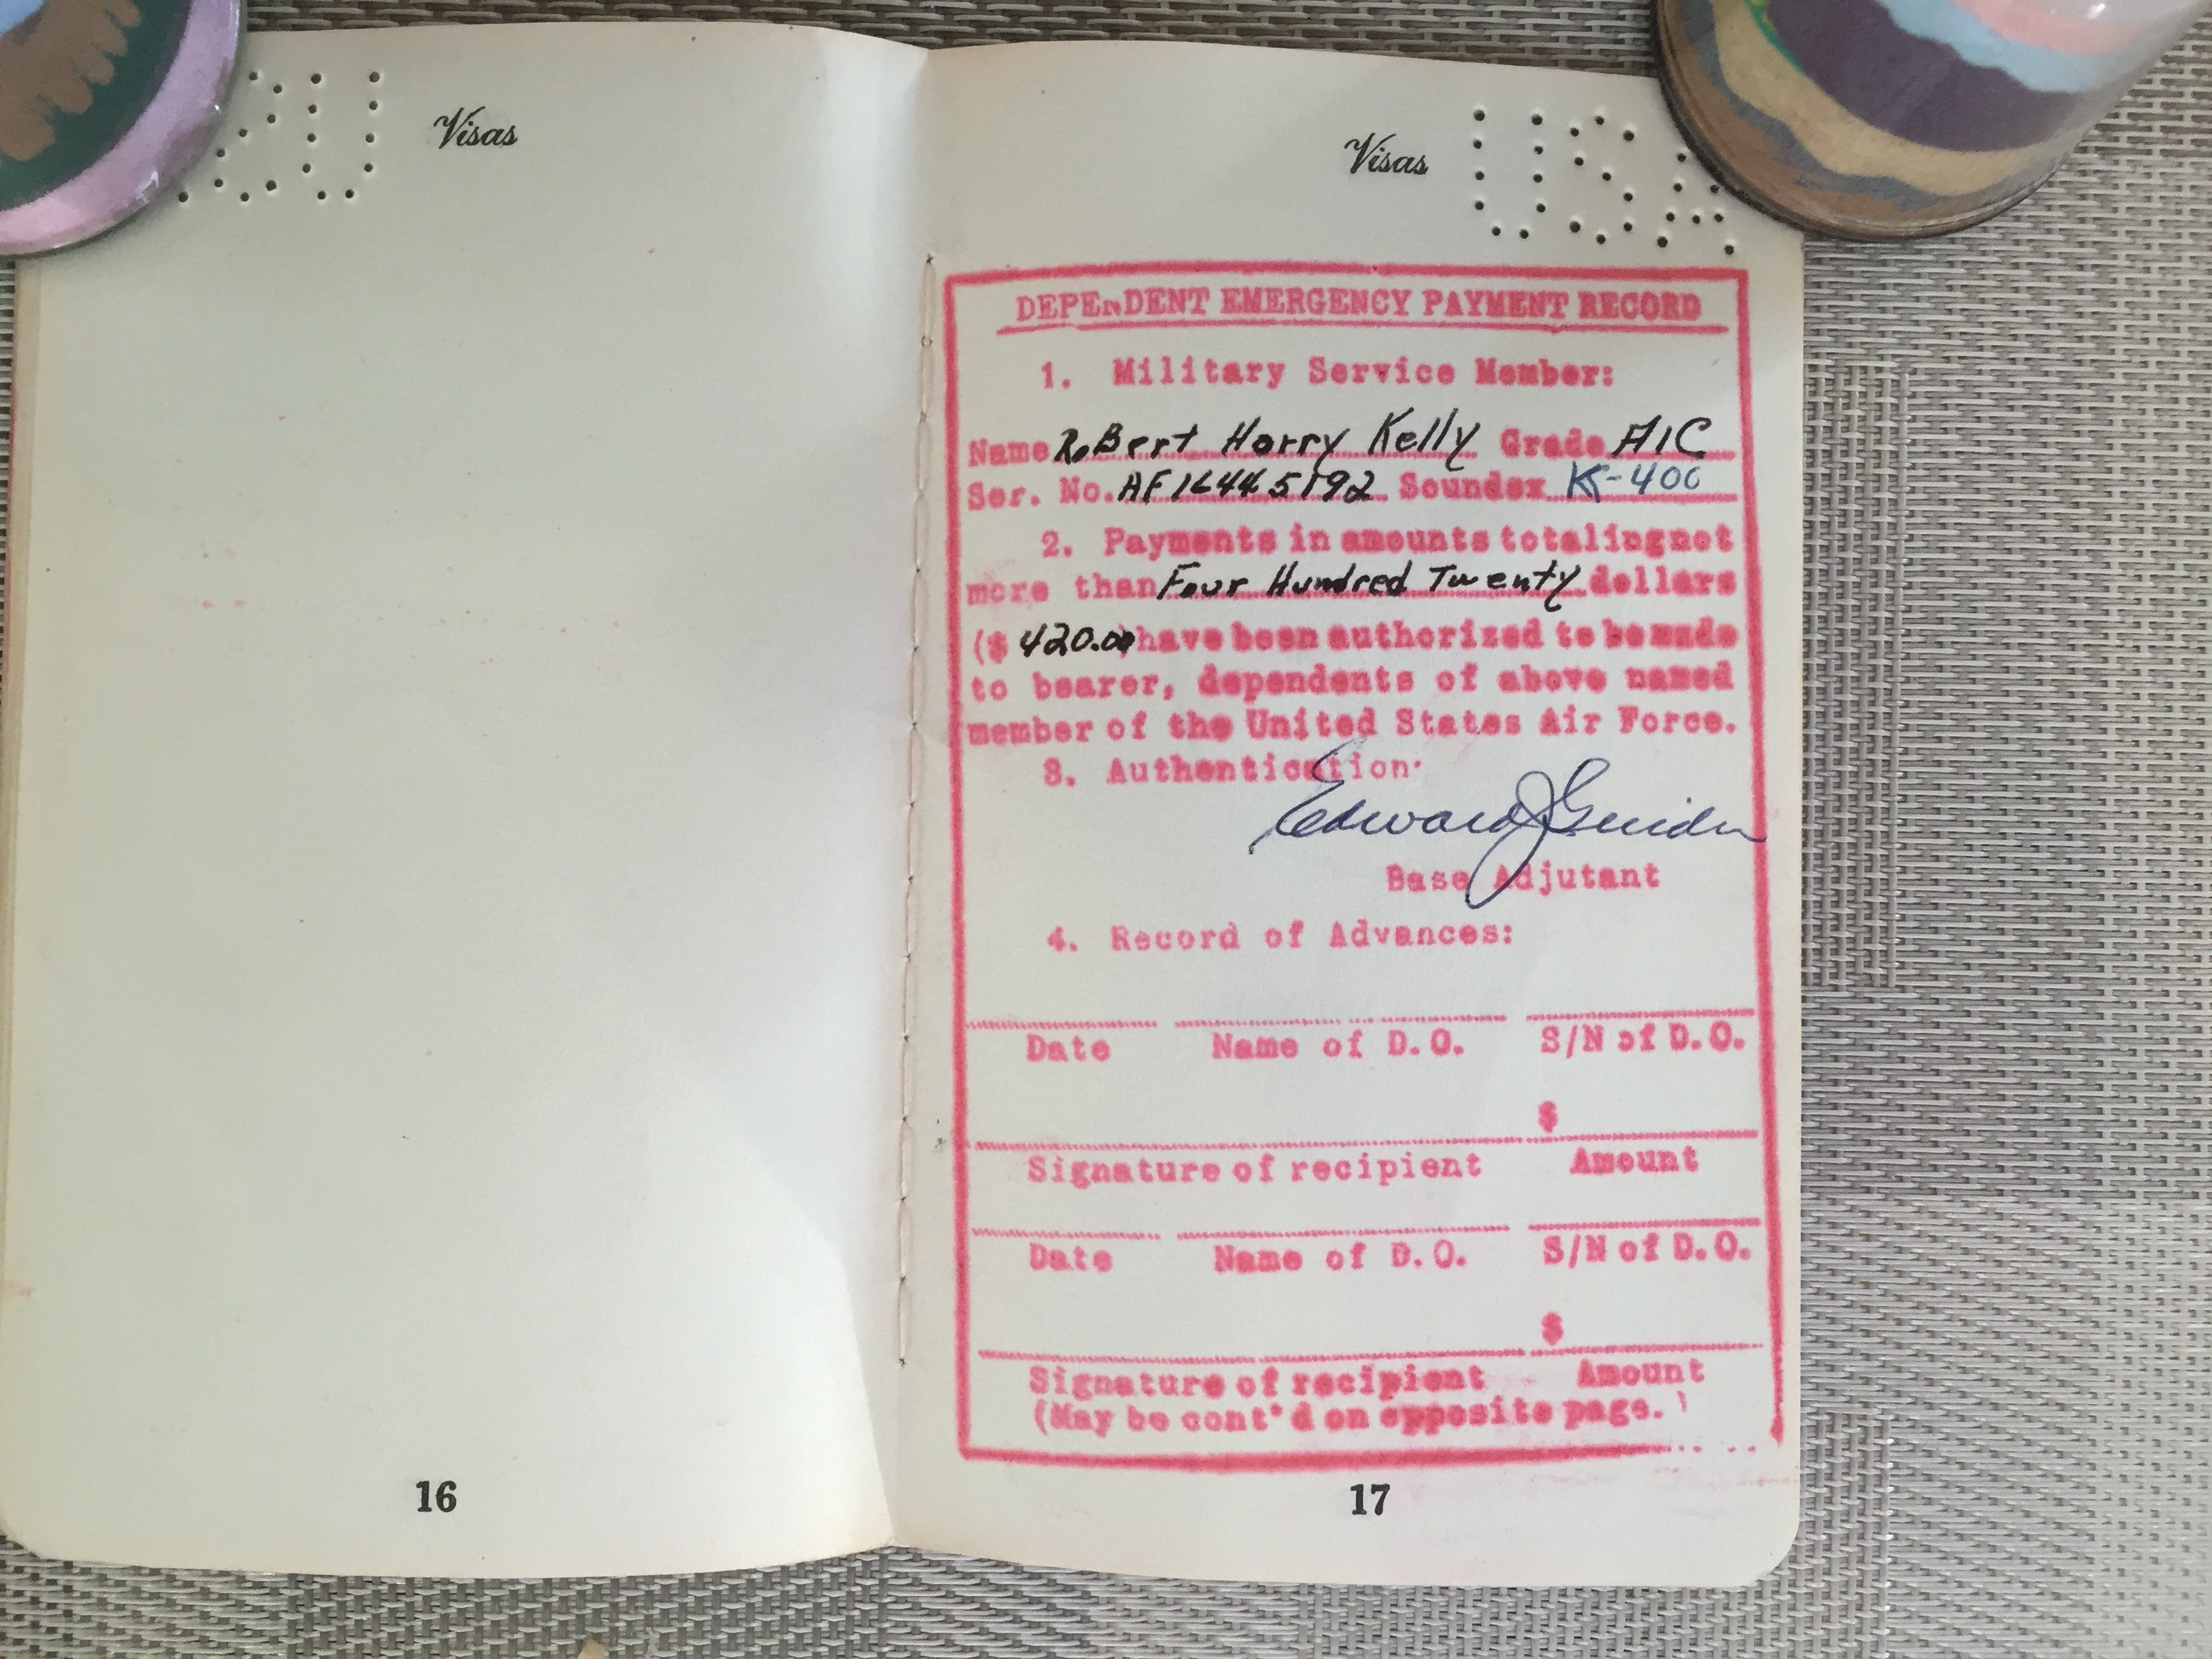 Visas
16
Visas
USA
DEPENDENT EMERGENCY PAYMENT RECORD
1. Military Service Member:
Name Robert Harry Kelly Grade A1C
Ser. No. AF16445192 Soundex K-400
2. Payments in amounts totaling not
more than Four Hundred Twenty dollars
($ 420.00) have been authorized to be made
to bearer, dependents of above named
member of the United States Air Force.
3. Authentication:
Edward J
Base Adjutant
4. Record of Advances:
Date Name of D.O. S/N of D.O.
$
Signature of recipient Amount
Date Name of D.O. S/N of D.O.
$
Signature of recipient Amount
(May be cont'd on opposite page.)
17